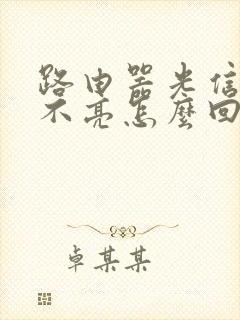 路由器光信
不亮怎麼回
卓某某